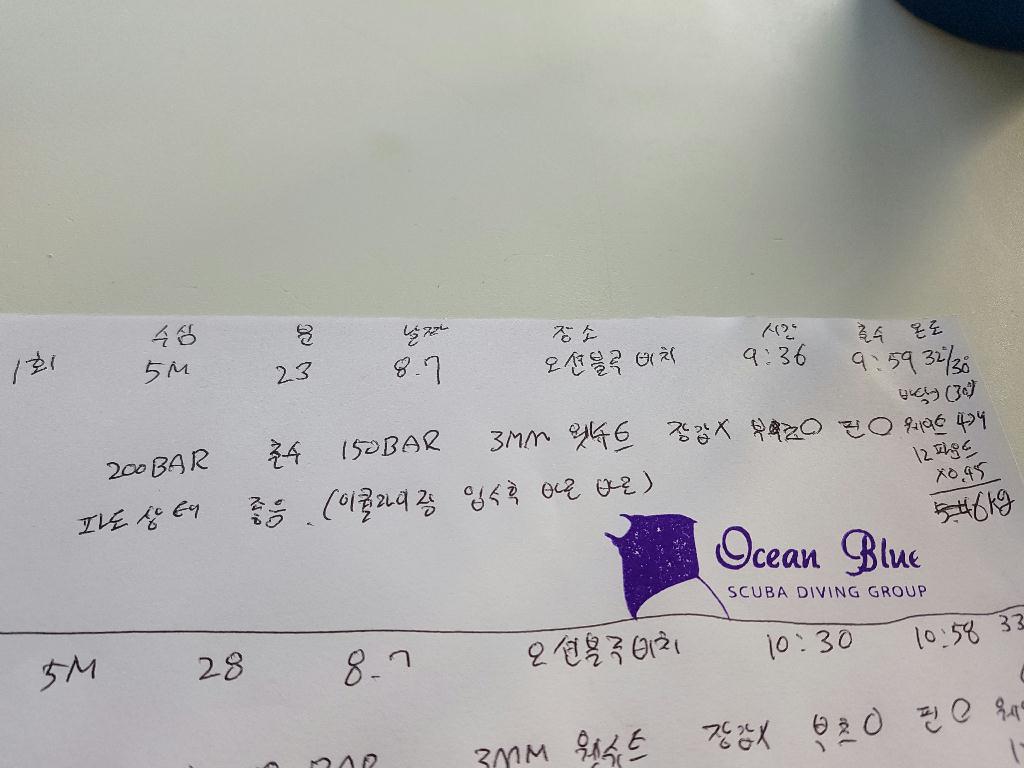 수심 분 날짜 장소 시간 출수 온도
1회 5M 23 8.7 오션블루 비치 9:36 9:59 32°/30°
200BAR 출수 150BAR 3MM 웻수트 장갑X 부츠O 핀O 웨이트 4개
12파운드
x0.45
6kg
파도 상태 좋음. (이퀄라이징 입수후 바로 바로)
Ocean Blue
SCUBA DIVING GROUP
5M 28 8.7 오션블루비치 10:30 10:58 33
BAR 3MM 웻수트 장갑X 부츠O 핀O